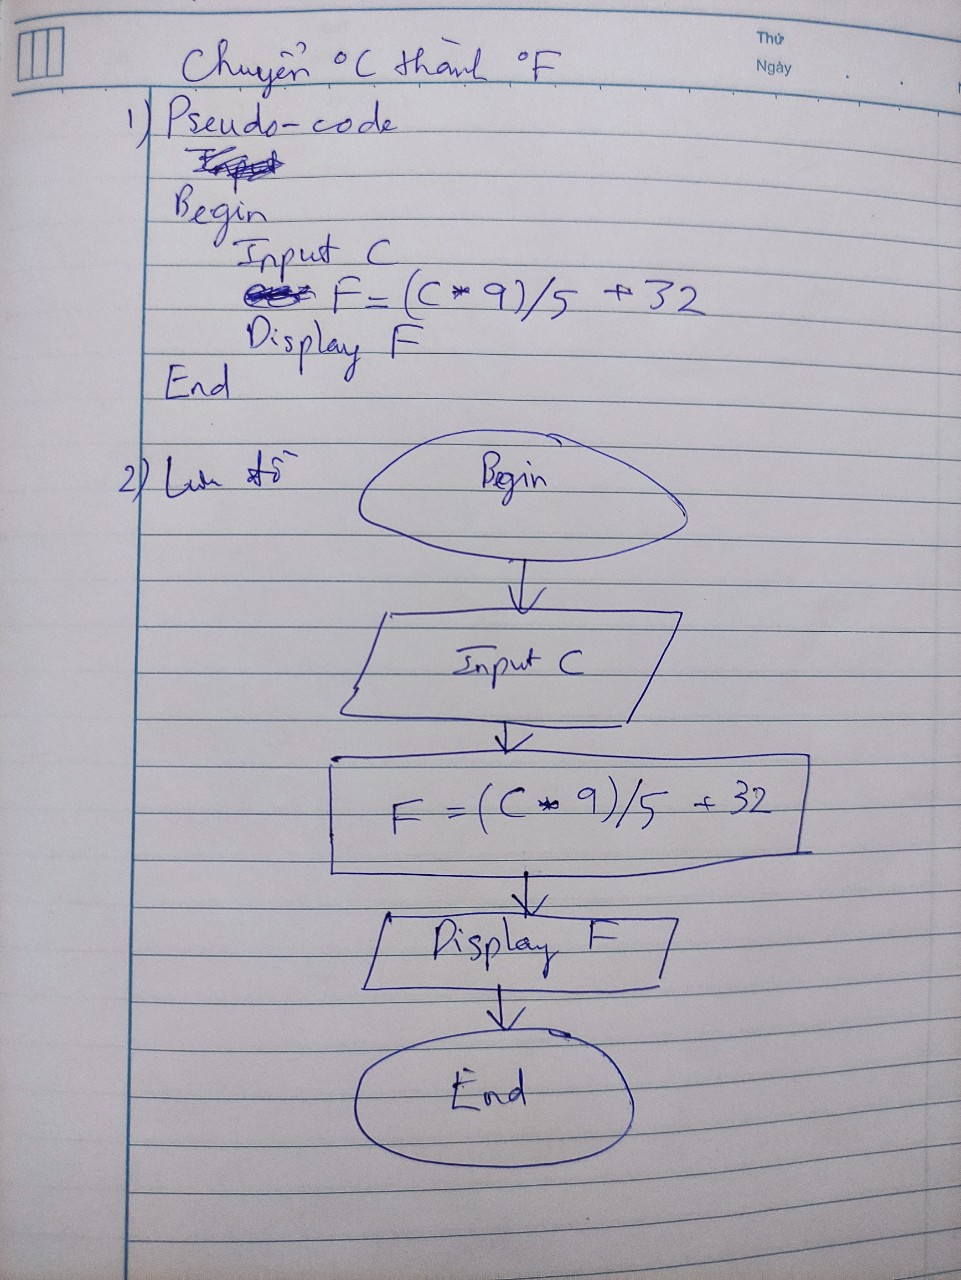 Thứ
Ngày
Chuyển °C thành °F
1) Pseudo-code
Begin
Input C
F = (C * 9)/5 + 32
Display F
End
2) Lưu đồ
Begin
Input C
F = (C * 9)/5 + 32
Display F
End